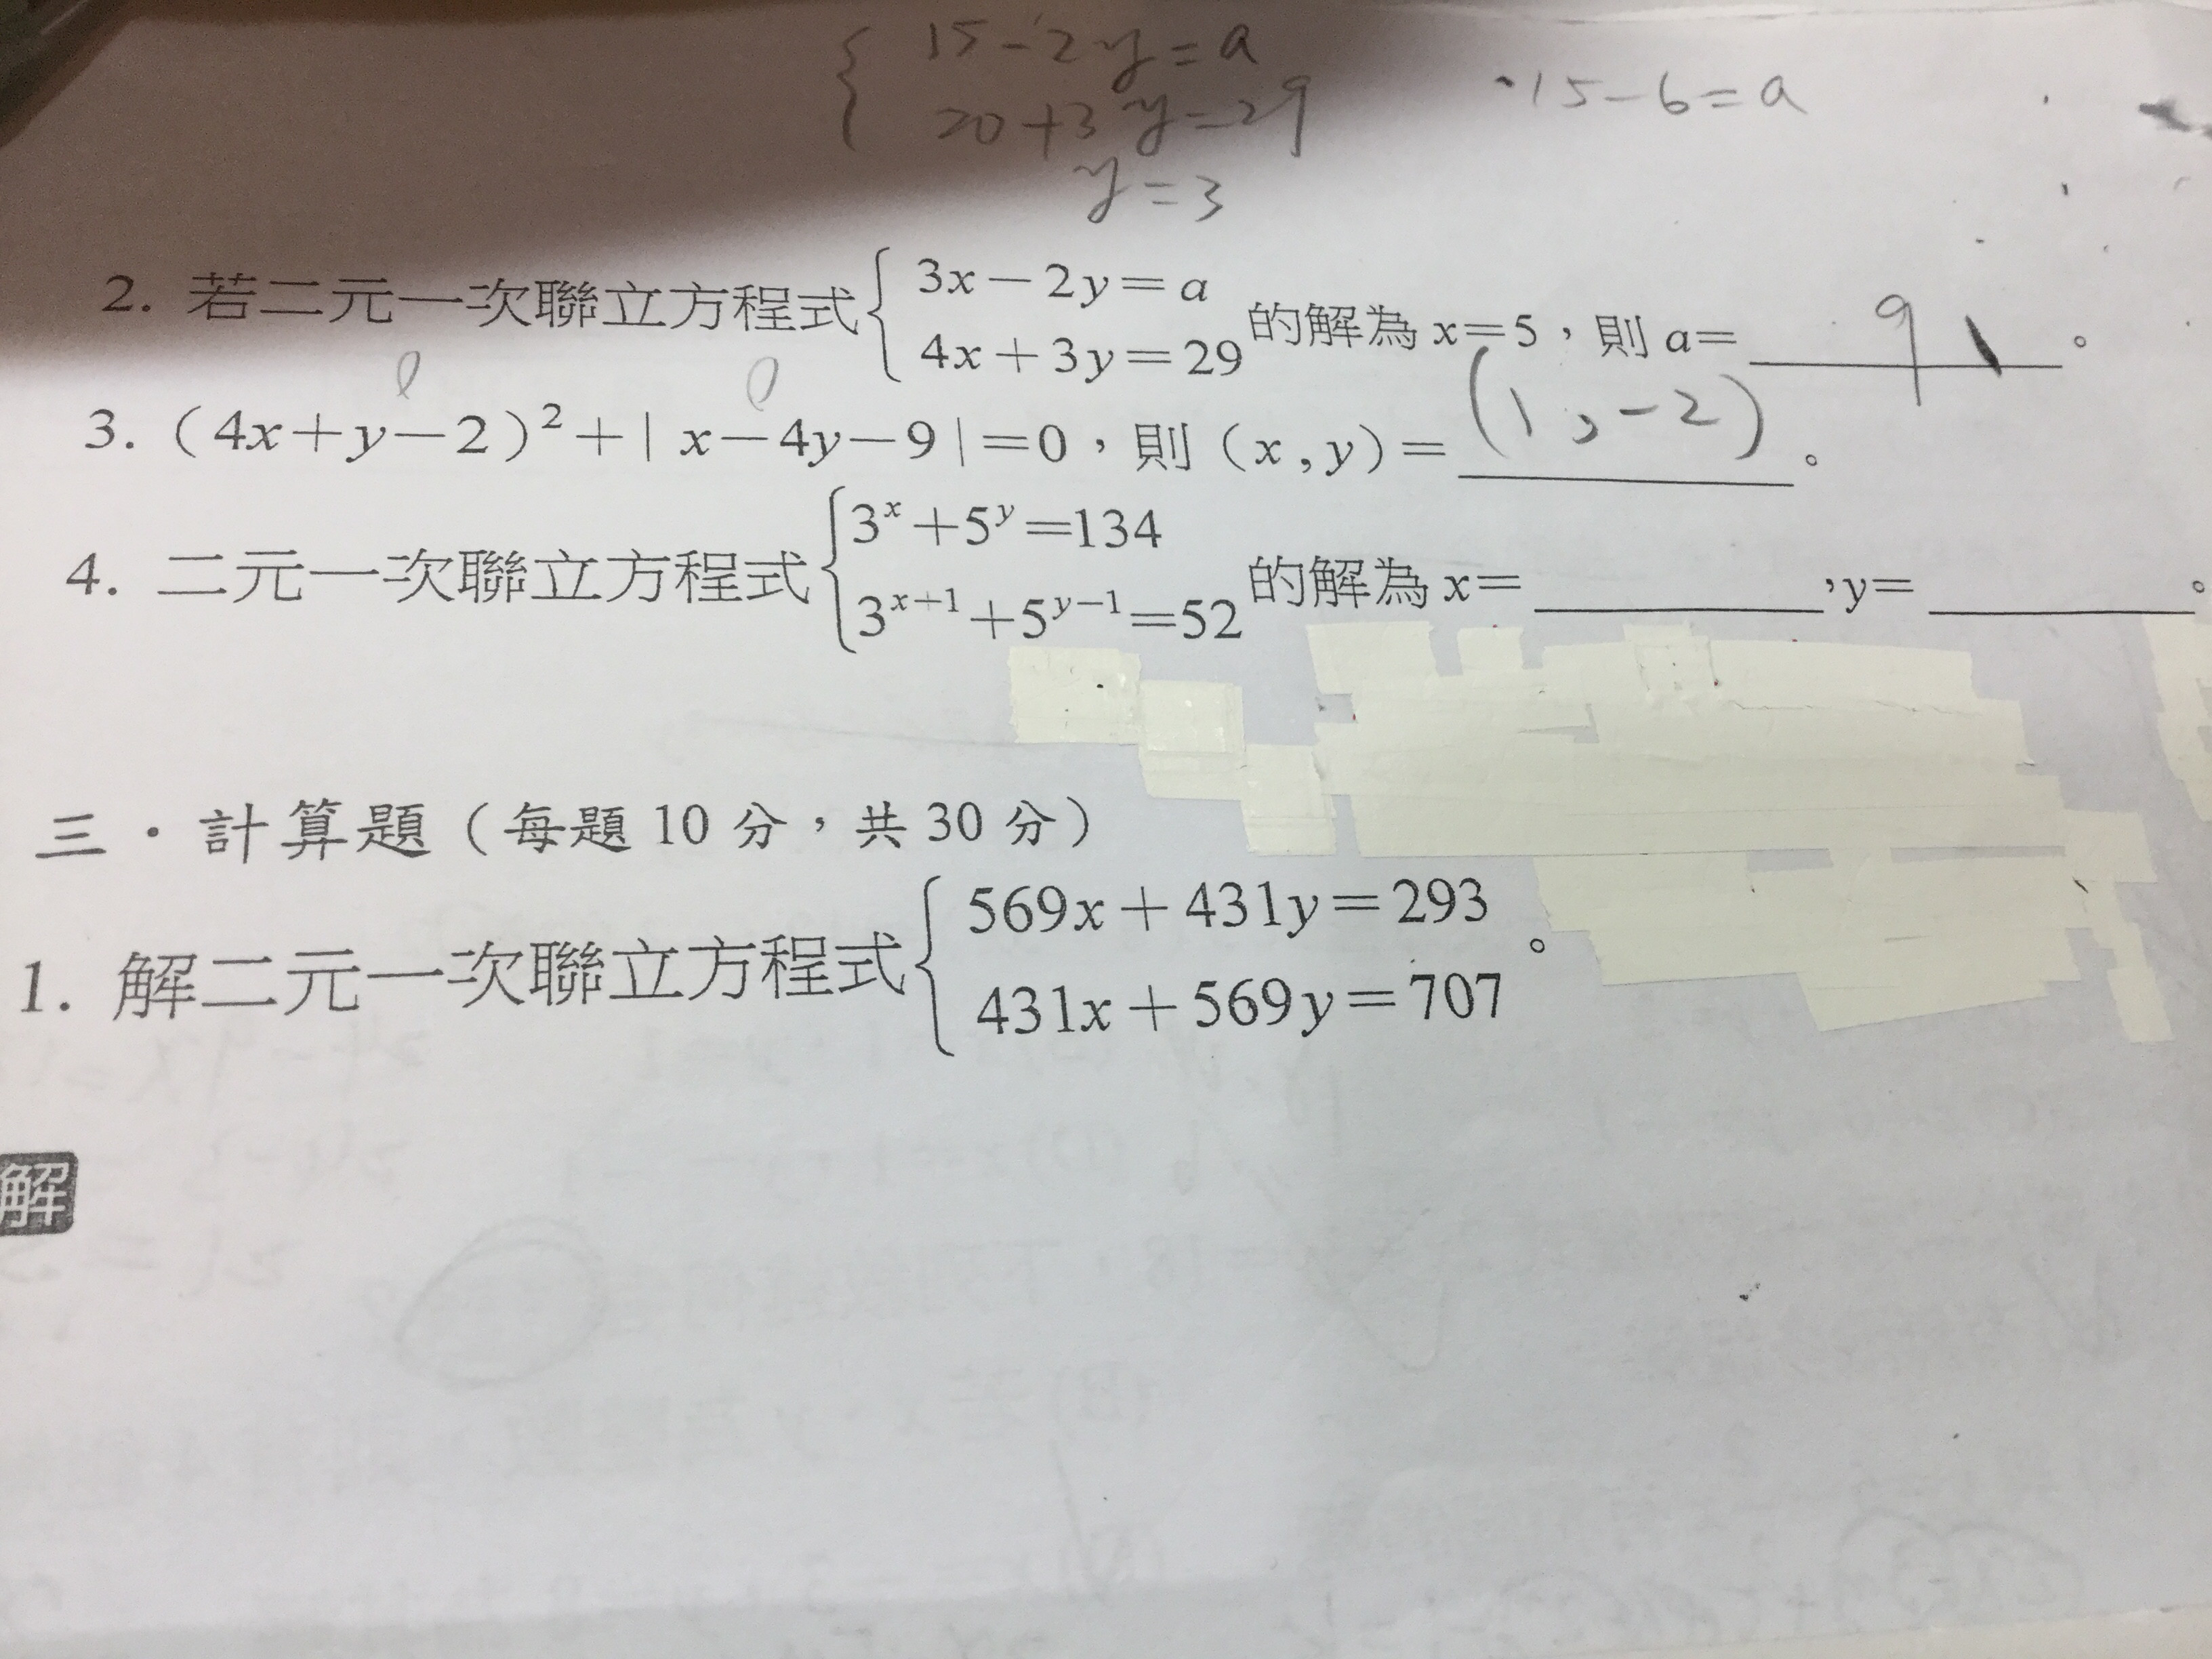 15-2y=a
20+3y=29
y=3
15-6=a
2. 若二元一次聯立方程式{3x-2y=a 4x+3y=29 的解為 x=5，則 a= 9 。
0 0
3.（4x+y-2）²+| x-4y-9 |=0，則（x , y）= (1,-2) 。
4. 二元一次聯立方程式{3ˣ+5ʸ=134 3ˣ⁺¹+5ʸ⁻¹=52 的解為 x=______，y=______。
三．計算題（每題 10 分，共 30 分）
1. 解二元一次聯立方程式{569x+431y=293 431x+569y=707 。
解